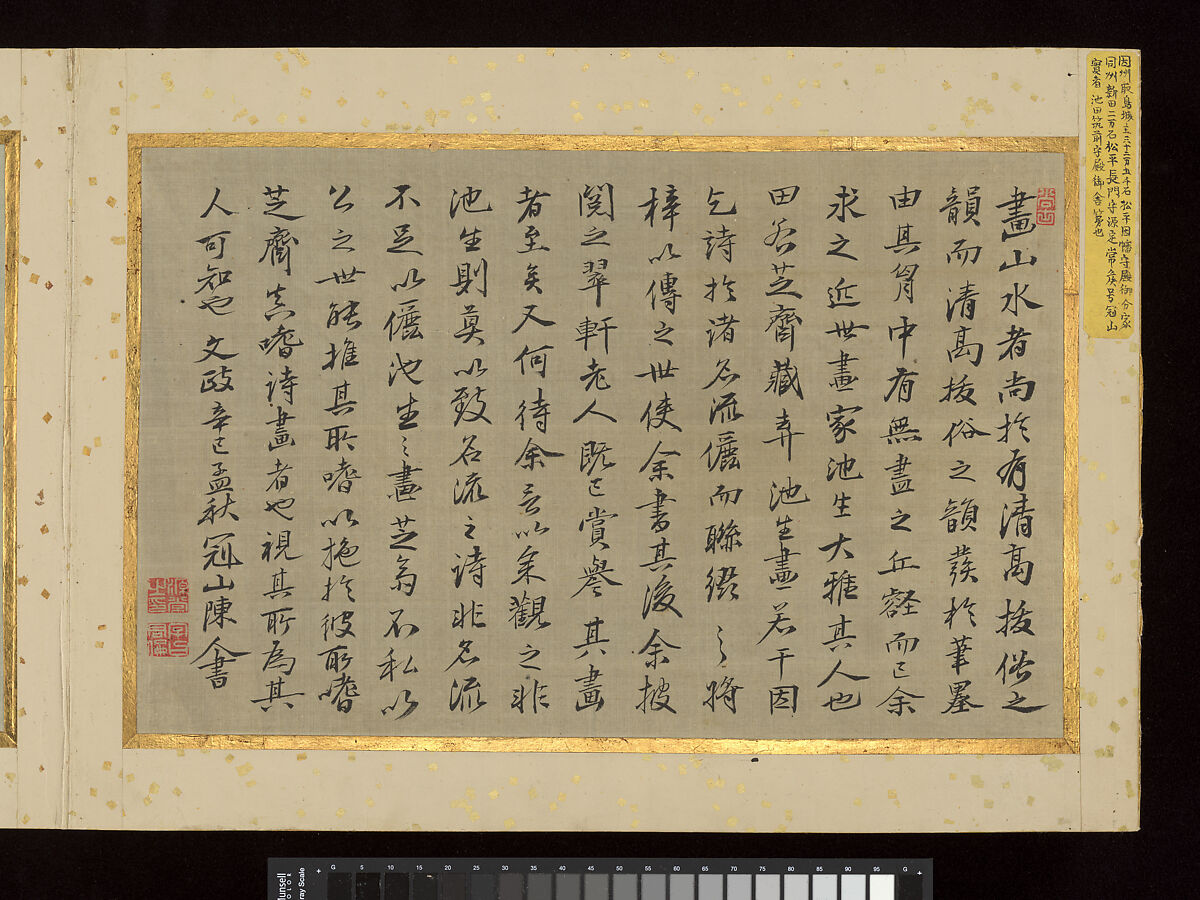 因州取鳥城主三十二万五千石 松平因幡守殿御分家
同州新田二万石松平長門守源定常矦号冠山
實者 池田筑前守殿御舎弟也
畫山水者尚於有清高拔俗之
韻而清高拔俗之韻發於筆墨
由其胷中有無盡之丘壑而已余
求之近世畫家池生大雅其人也
田谷芝齋藏弆池生畫若干因
乞詩於諸名流儷而聯綴之將
梓以傳之世使余書其後余披
閱之翠軒老人既已賞譽其畫
者至矣又何待余言以年觀之非
池生則莫以致名流之詩非名流
不足以儷池生之畫芝翁不私以
公之世能推其所嗜以施於彼所嗜
芝齋真嗜詩畫者也視其所為其
人可知也 文政辛巳孟秋冠山陳人書